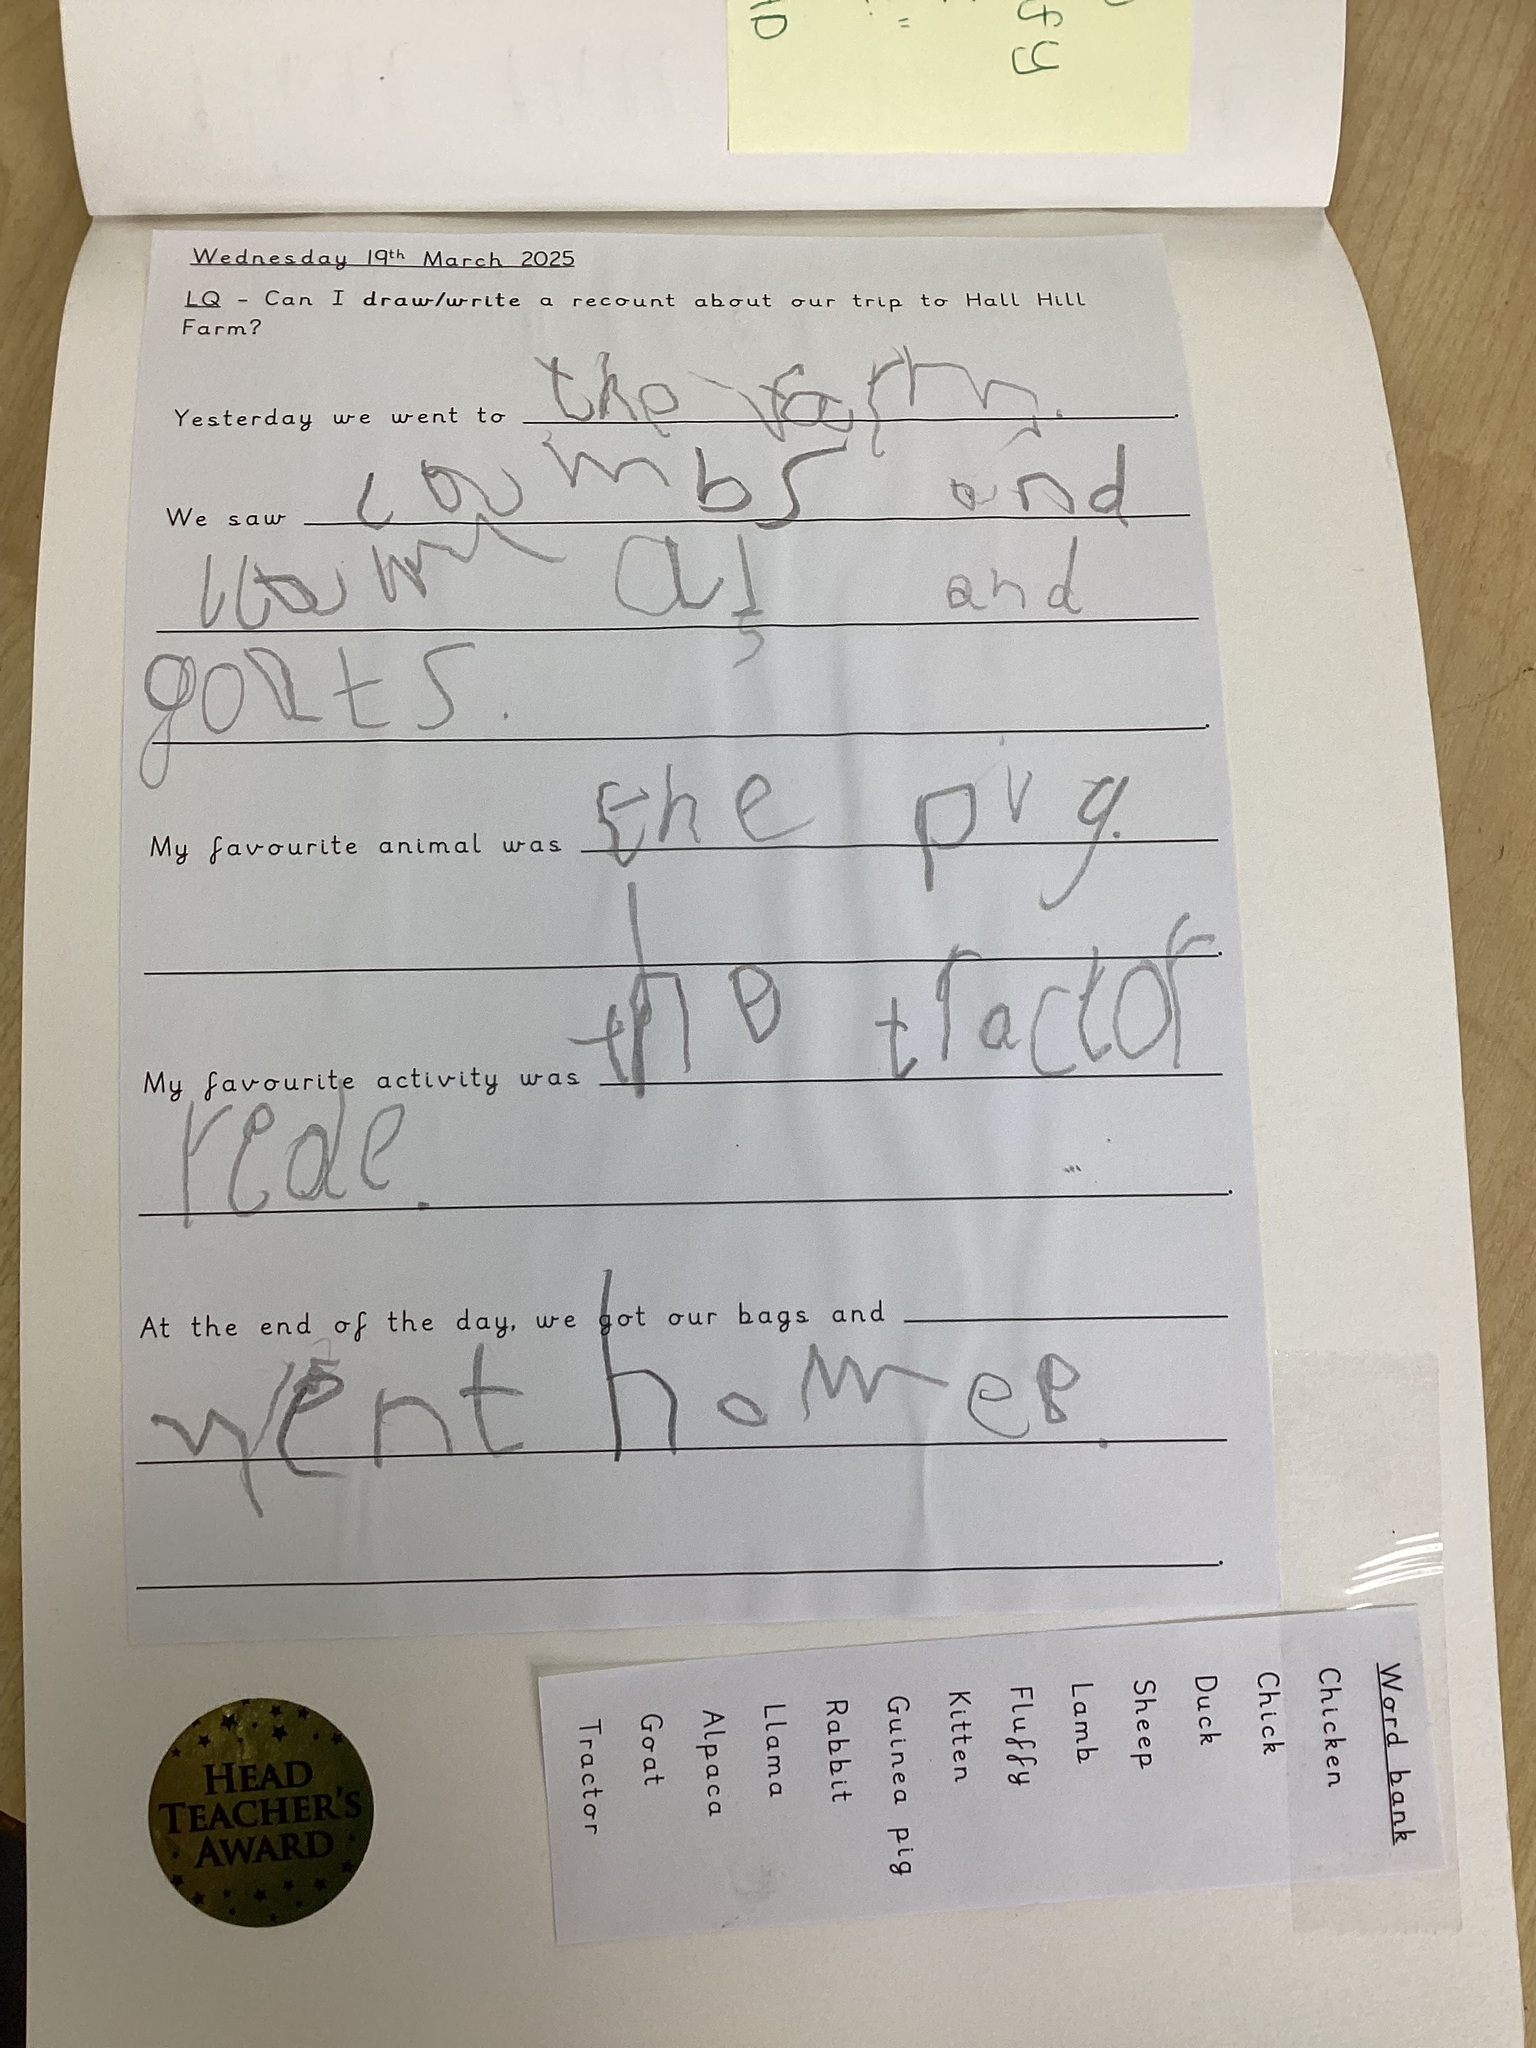 fy
Wednesday 19th March 2025
LQ - Can I draw/write a recount about our trip to Hall Hill
Farm?
Yesterday we went to the farm.
We saw lambs and
llamas and
goats.
My favourite animal was the pig.
My favourite activity was the tractor
rede.
At the end of the day, we got our bags and
went home.
HEAD
TEACHER'S
AWARD
Word bank
Chicken
Chick
Duck
Sheep
Lamb
Fluffy
Kitten
Guinea pig
Rabbit
Llama
Alpaca
Goat
Tractor